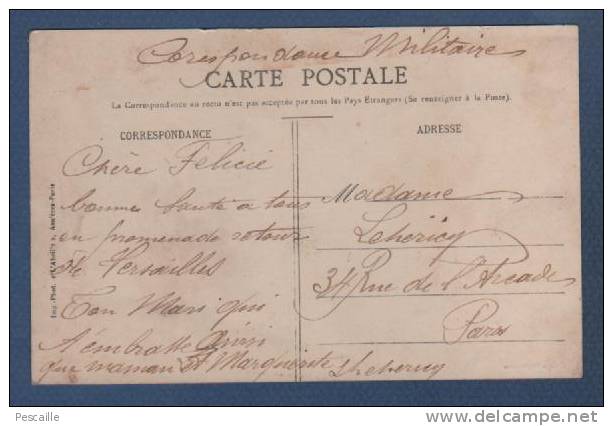 Corespondance Militaire
CARTE POSTALE
La Correspondance au recto n'est pas acceptée par tous les Pays Etrangers (Se renseigner à la Poste).
CORRESPONDANCE
ADRESSE
Chère Felicie
bonne Santé a tous
en promenade retour
de Versailles
Ton Mari qui
t'embrasse Ainsi
que maman et Marguerite
Lehericy
Madame
Lehericy
34 Rue de l'Arcade
Paris
Pescaille
www.delcampe.net